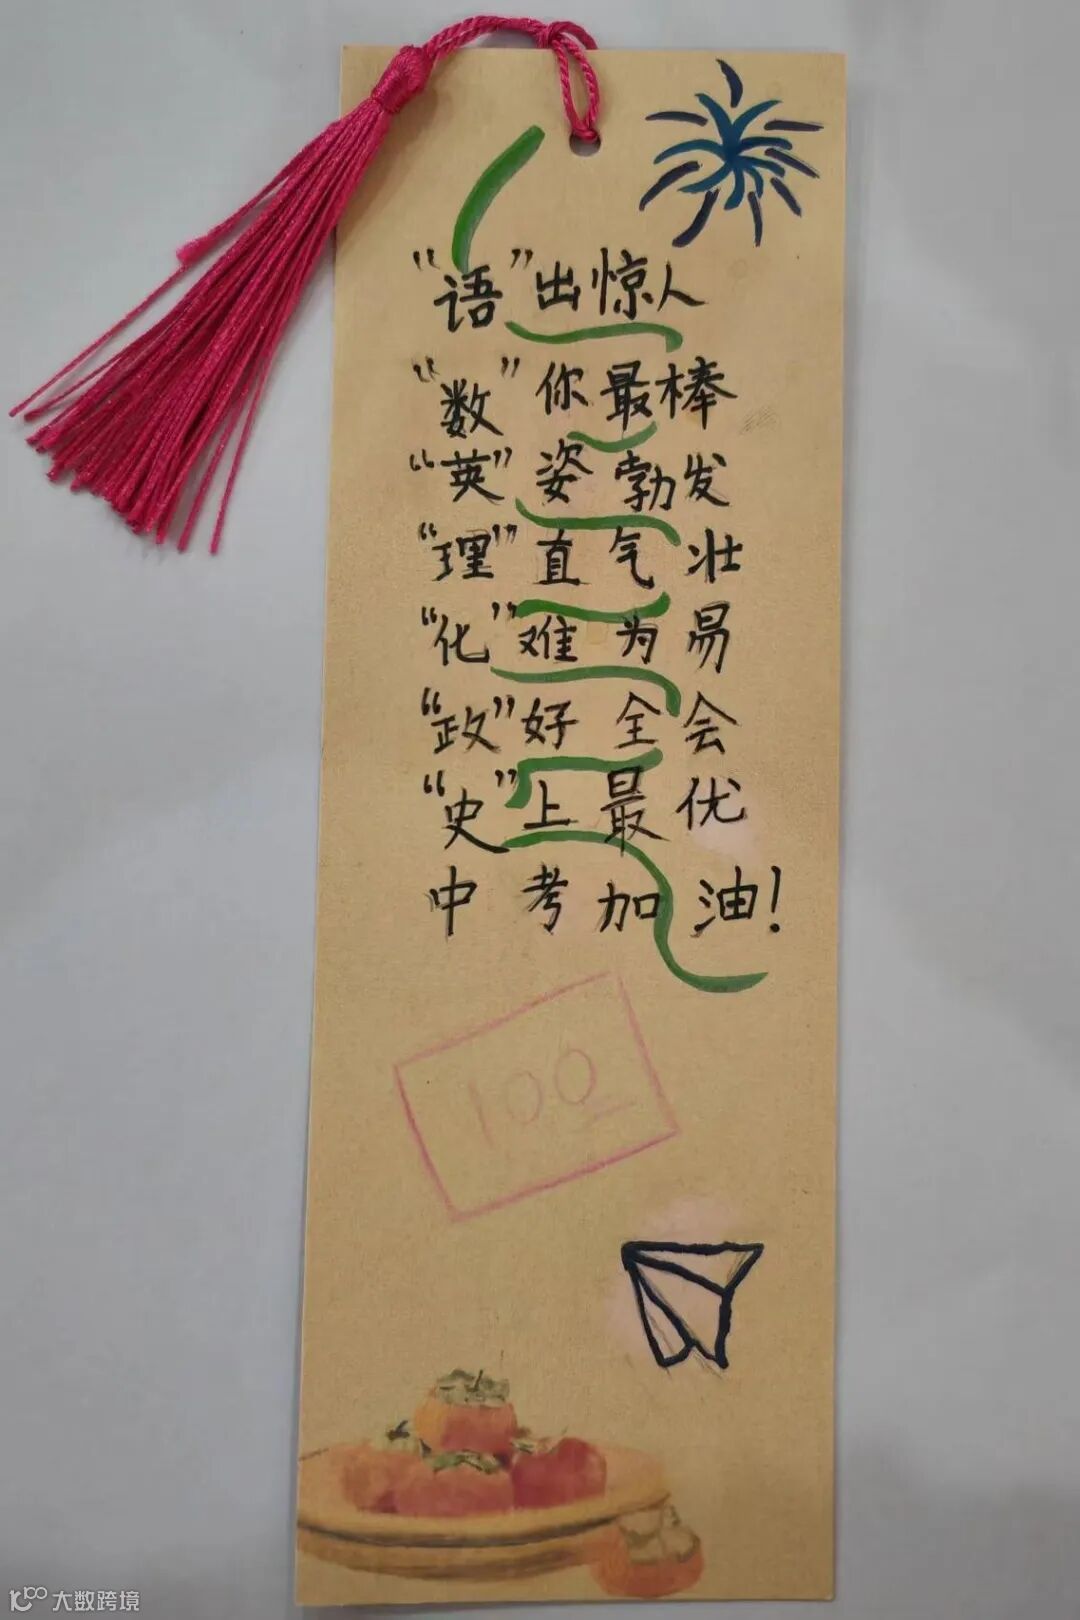 “语”出惊人
“数”你最棒
“英”姿勃发
“理”直气壮
“化”难为易
“政”好全会
“史”上最优
中考加油！
100
大数跨境